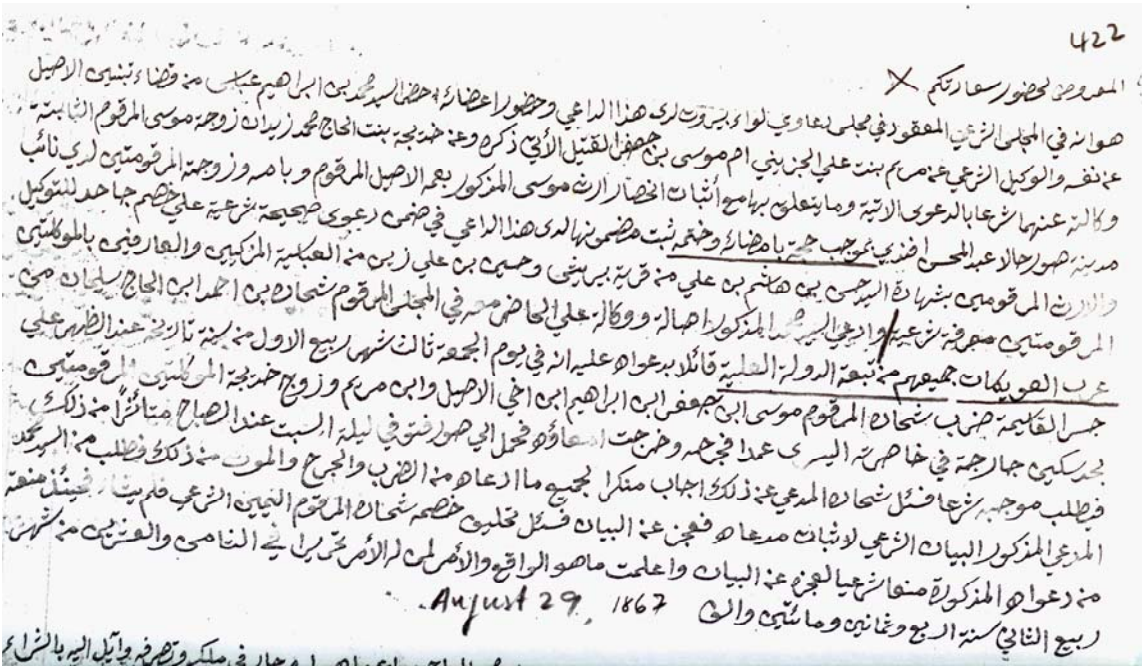 422
المعروض لحضور سعادتكم
هو انه في المجلس الشرعي المعقود في مجلس دعاوي لواء بيروت لدى هذا الداعي وحضور اعضائه حضر السيد محمد بن ابراهيم عباس من قضاء تبنين الاصيل
عن نفسه والوكيل الشرعي عن مريم بنت علي ام موسى بن جعفر القتيل الآتي ذكره وعن خديجة بنت الحاج محمد زيدان زوجة موسى المرقوم الثابتة
وكالته عنهما شرعا بالدعوى الاتية وما يتعلق بها مع أثبات انحصار ارث موسى المذكور بعمه الاصيل المرقوم وبامه وزوجته المرقومتين لدى نائب
مدينة صور حالا عبد المحسن افندي بموجب حجة بامضائه وختمه ثبت مضمونها لدى هذا الداعي في ضمن دعوى صحيحة شرعية على خصم جاحد للتوكيل
والارث المرقومين بشهادة السيد حسن بن هاشم بن علي من قرية وحسين بن علي زين من العباسية المزكيين والعارفين بالموكلتين
المرقومتين معرفة شرعية وادعى السيد محمد المذكور اصالة ووكالة على الحاضر معه في المجلس المرقوم شحاده بن احمد ابن الحاج سليمان من
عرب جميعهم من تبعة الدولة العلية قائلا بدعواه عليه انه في يوم الجمعة ثالث شهر ربيع الاول من سنة تاريخه عند الظهر على
جسر القاسمية ضرب شحاده المرقوم موسى ابن جعفر ابن ابراهيم ابن اخي الاصيل وابن مريم وزوج خديجة الموكلتين المرقومتين
بحد سكين جارحة في خاصرته اليسرى عمدا فجرحه وخرجت امعاؤه فحمل الى صور فتوفي ليلة السبت عند الصباح متأثرا من ذلك
فيطلب موجبه شرعا فسئل شحاده المدعي عن ذلك اجاب منكرا لجميع ما ادعاه من الضرب والجرح والموت من ذلك فطلب من السيد محمد
المدعي المذكور البيان الشرعي لاثبات مدعاه فعجز عن البيان فسئل تحليف خصمه شحاده المرقوم اليمين الشرعي فلم يشاء فحينئذ منعته
من دعواه المذكورة منعا شرعيا لعجزه عن البيان واعلمت ما هو الواقع والأمر لمن له الأمر تحريرا في الثامن والعشرين من شهر
ربيع الثاني سنة اربع وثمانين ومائتين والف August 29, 1867